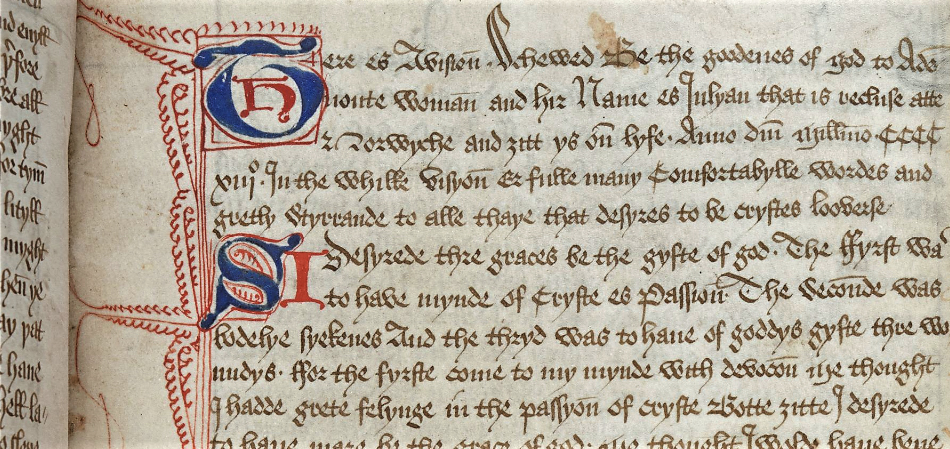 Here es Avisioun Schewed Be the goodenes of god to Ade
uoute Womañ and hir Name es Julyañ that is recluse atte
Norwyche and ʒitt ys oñ lyfe. Anno dm̄ millīmo CCCC
xiijº. In the whilke visyoñ Er fulle many Comfortabylle wordes and
gretly Styrrande to alle thaye that desyres to be crystes looverse
I Desyrede thre graces be the gyfte of god. The ffyrst wa
to have mynde of Cryste es Passioñ. The secoūde was
bodelye syekenes And the thryd was to haue of goddys gyfte thre wo
undys. ffor the fyrste come to my mynde with devocoñ me thought
I hadde grete felynge in the passyoñ of cryste Botte ʒitte I desyrede
to haue mare be the grace of god. me thought I wolde haue bene